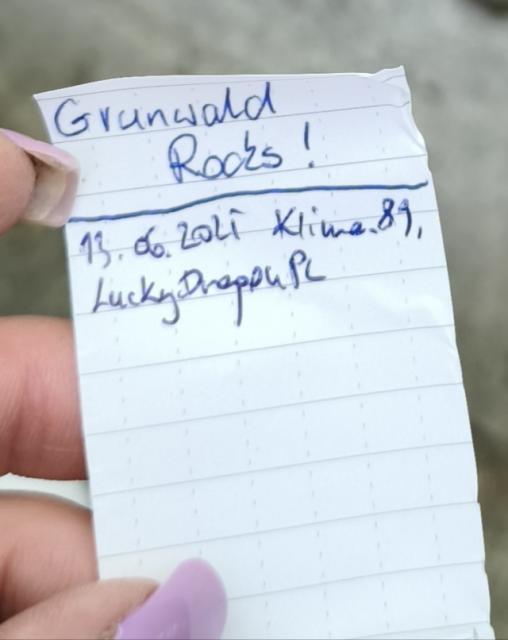 Grunwald
Rocks!
13.06.2021 Klima.89,
LuckyDragonPL